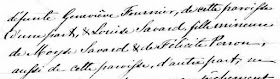 défunte Geneviève Fournier, de cette paroisse
d'une part, & Louise Savard, fille mineure
de Moyse Savard & de Félicité Perron,
aussi de cette paroisse, d'autre part, ne